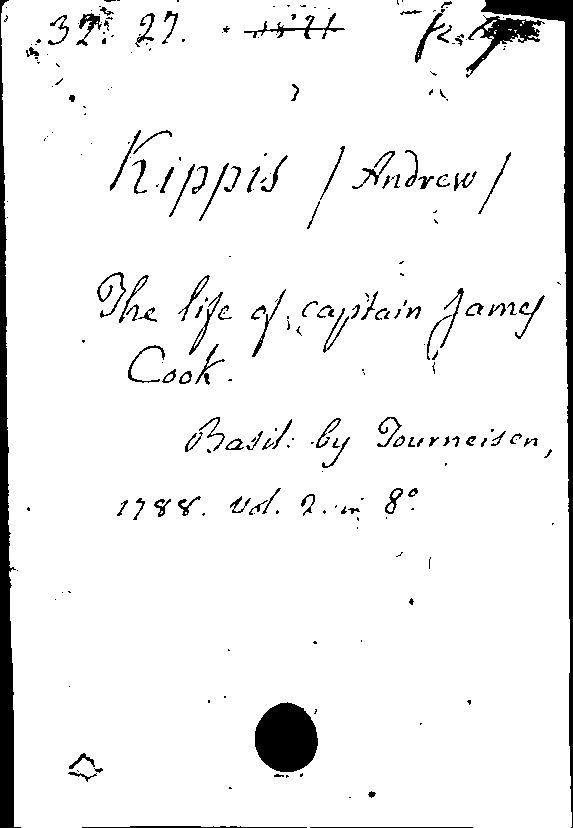 32. 27.
Kippis / Andrew /
The life of captain James
Cook.
Basil: by Tourneisen,
1788. Vol. 2. in 8º